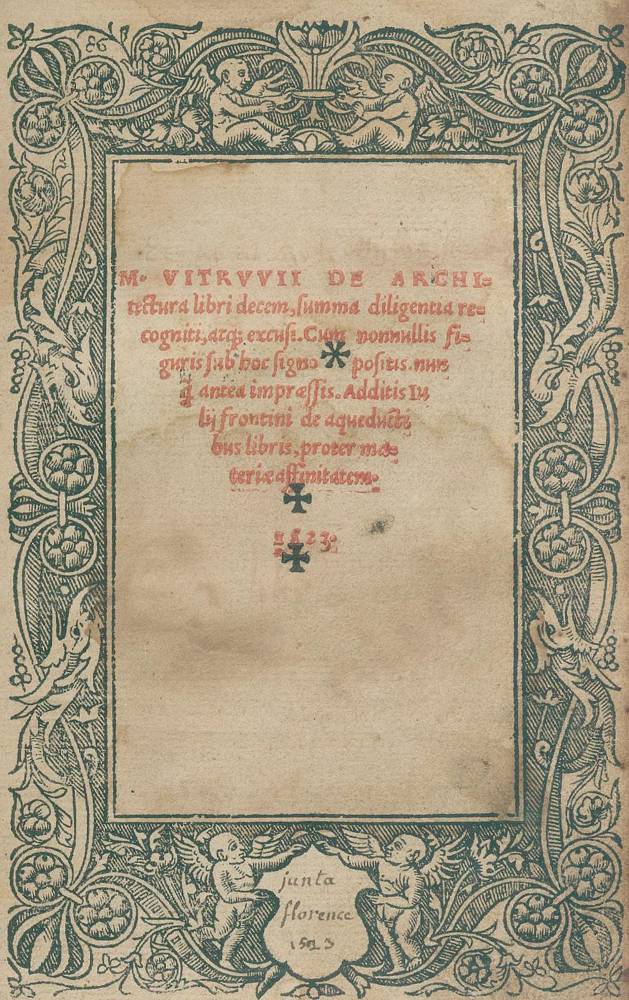 M. VITRVVII DE ARCHI-
tectura libri decem, summa diligentia re-
cogniti, atq; excusi. Cum nonnullis fi-
guris sub hoc signo * positis. nun
q̃ antea impræssis. Additis Iu
lij frontini de aqueducti
bus libris, propter ma-
teriæ affinitatem.
✠
1523.
✠
junta
florence
1513